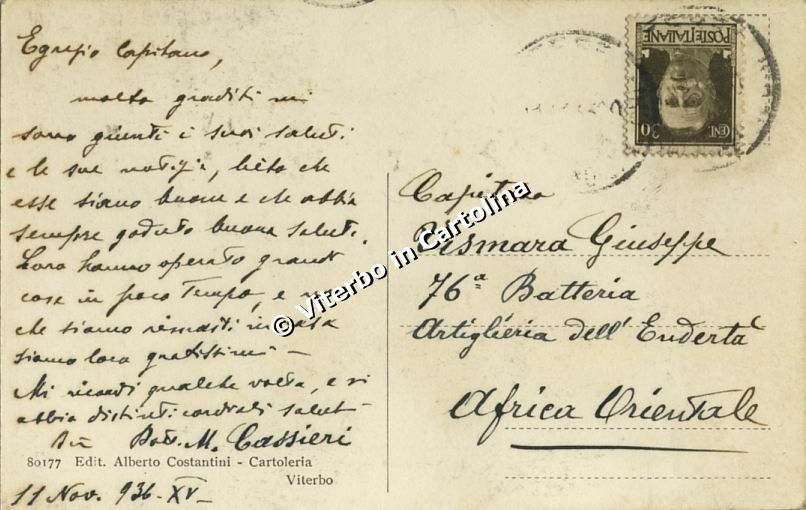 Egregio Capitano,
molto graditi mi
sono giunti i suoi saluti
e le sue notizie, lieto che
esse siano buone e che abbia
sempre goduto buona salute.
Loro hanno operato grandi
cose in poco tempo, e noi
che siamo rimasti in casa
siamo loro gratissimi -
Mi ricordi qualche volta, e si
abbia distinti cordiali saluti
Dott. M. Cassieri
80177 Edit. Alberto Costantini - Cartoleria
Viterbo
11 Nov. 936 - XV -
POSTE ITALIANE
CENT. 30
Capitano
Vismara Giuseppe
76ª Batteria
Artiglieria dell' Endertà
Africa Orientale
© Viterbo in Cartolina